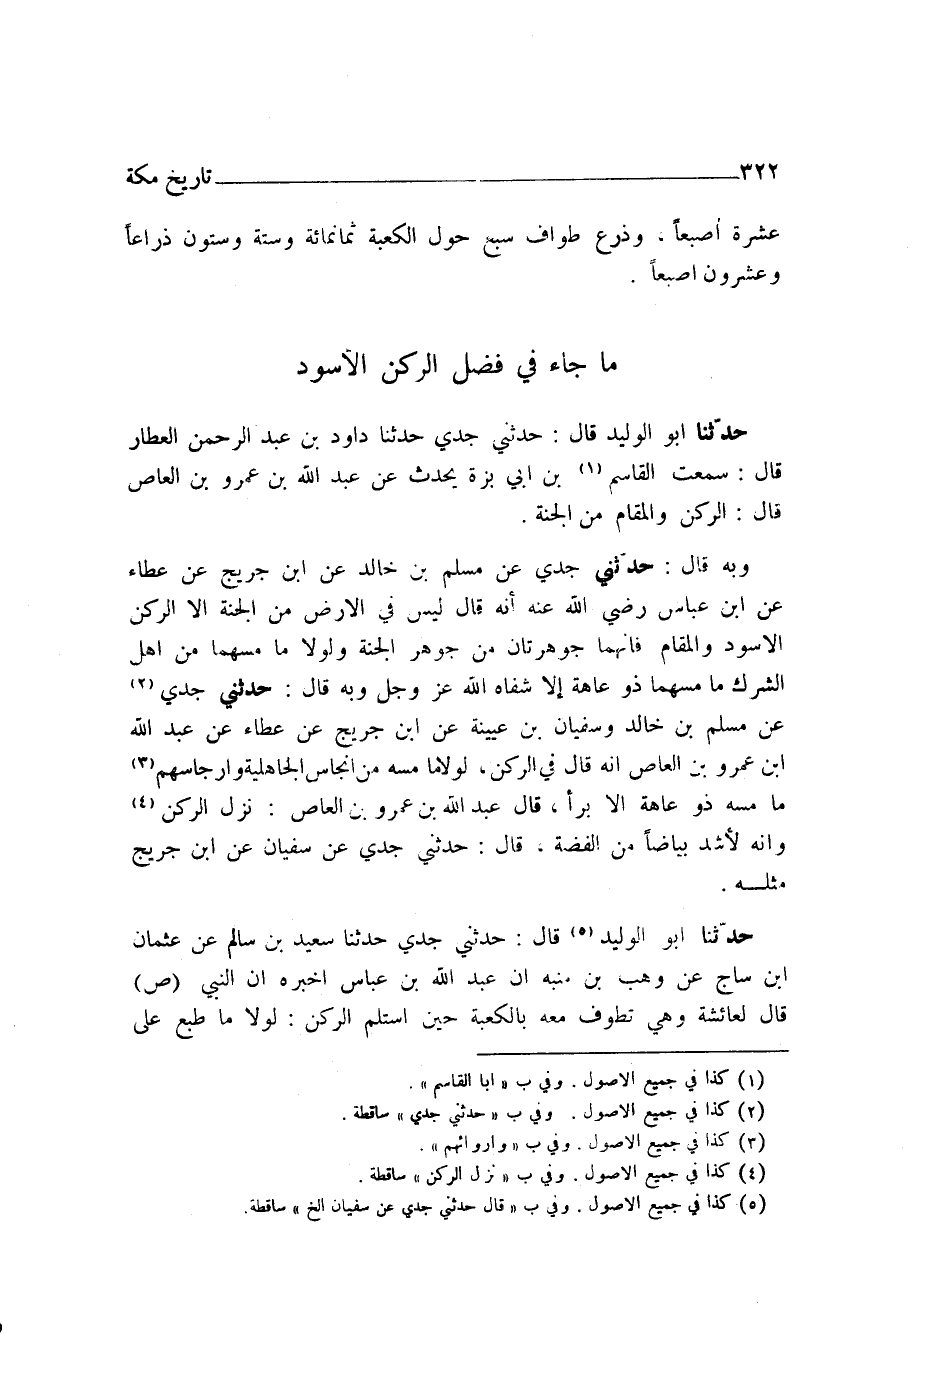 ٣٢٢ تاريخ مكة
عشرة أصبعاً ، وذرع طواف سبع حول الكعبة ثمانمائة وستة وستون ذراعاً
وعشرون اصبعاً .
ما جاء في فضل الركن الأسود
حدّثنا ابو الوليد قال : حدثني جدي حدثنا داود بن عبد الرحمن العطار
قال : سمعت القاسم (١) بن ابي بزة يحدث عن عبد الله بن عمرو بن العاص
قال : الركن والمقام من الجنة .
وبه قال : حدّثني جدي عن مسلم بن خالد عن ابن جريج عن عطاء
عن ابن عباس رضي الله عنه أنه قال ليس في الارض من الجنة الا الركن
الاسود والمقام فانهما جوهرتان من جوهر الجنة ولولا ما مسهما من اهل
الشرك ما مسهما ذو عاهة إلا شفاه الله عز وجل وبه قال : حدثني جدي (٢)
عن مسلم بن خالد وسفيان بن عيينة عن ابن جريج عن عطاء عن عبد الله
ابن عمرو بن العاص انه قال في الركن ، لولاما مسه من انجاس الجاهلية وارجاسهم (٣)
ما مسه ذو عاهة الا برأ ، قال عبد الله بن عمرو بن العاص : نزل الركن (٤)
وانه لأشد بياضاً من الفضة ، قال : حدثني جدي عن سفيان عن ابن جريج
مثلـــه .
حدّثنا ابو الوليد (٥) قال : حدثني جدي حدثنا سعيد بن سالم عن عثمان
ابن ساج عن وهب بن منبه ان عبد الله بن عباس اخبره ان النبي (ص)
قال لعائشة وهي تطوف معه بالكعبة حين استلم الركن : لولا ما طبع على
(١) كذا في جميع الاصول . وفي ب « ابا القاسم » .
(٢) كذا في جميع الاصول . وفي ب « حدثني جدي » ساقطة .
(٣) كذا في جميع الاصول . وفي ب « واروائهم » .
(٤) كذا في جميع الاصول . وفي ب « نزل الركن » ساقطة .
(٥) كذا في جميع الاصول . وفي ب « قال حدثني جدي عن سفيان الخ » ساقطة.